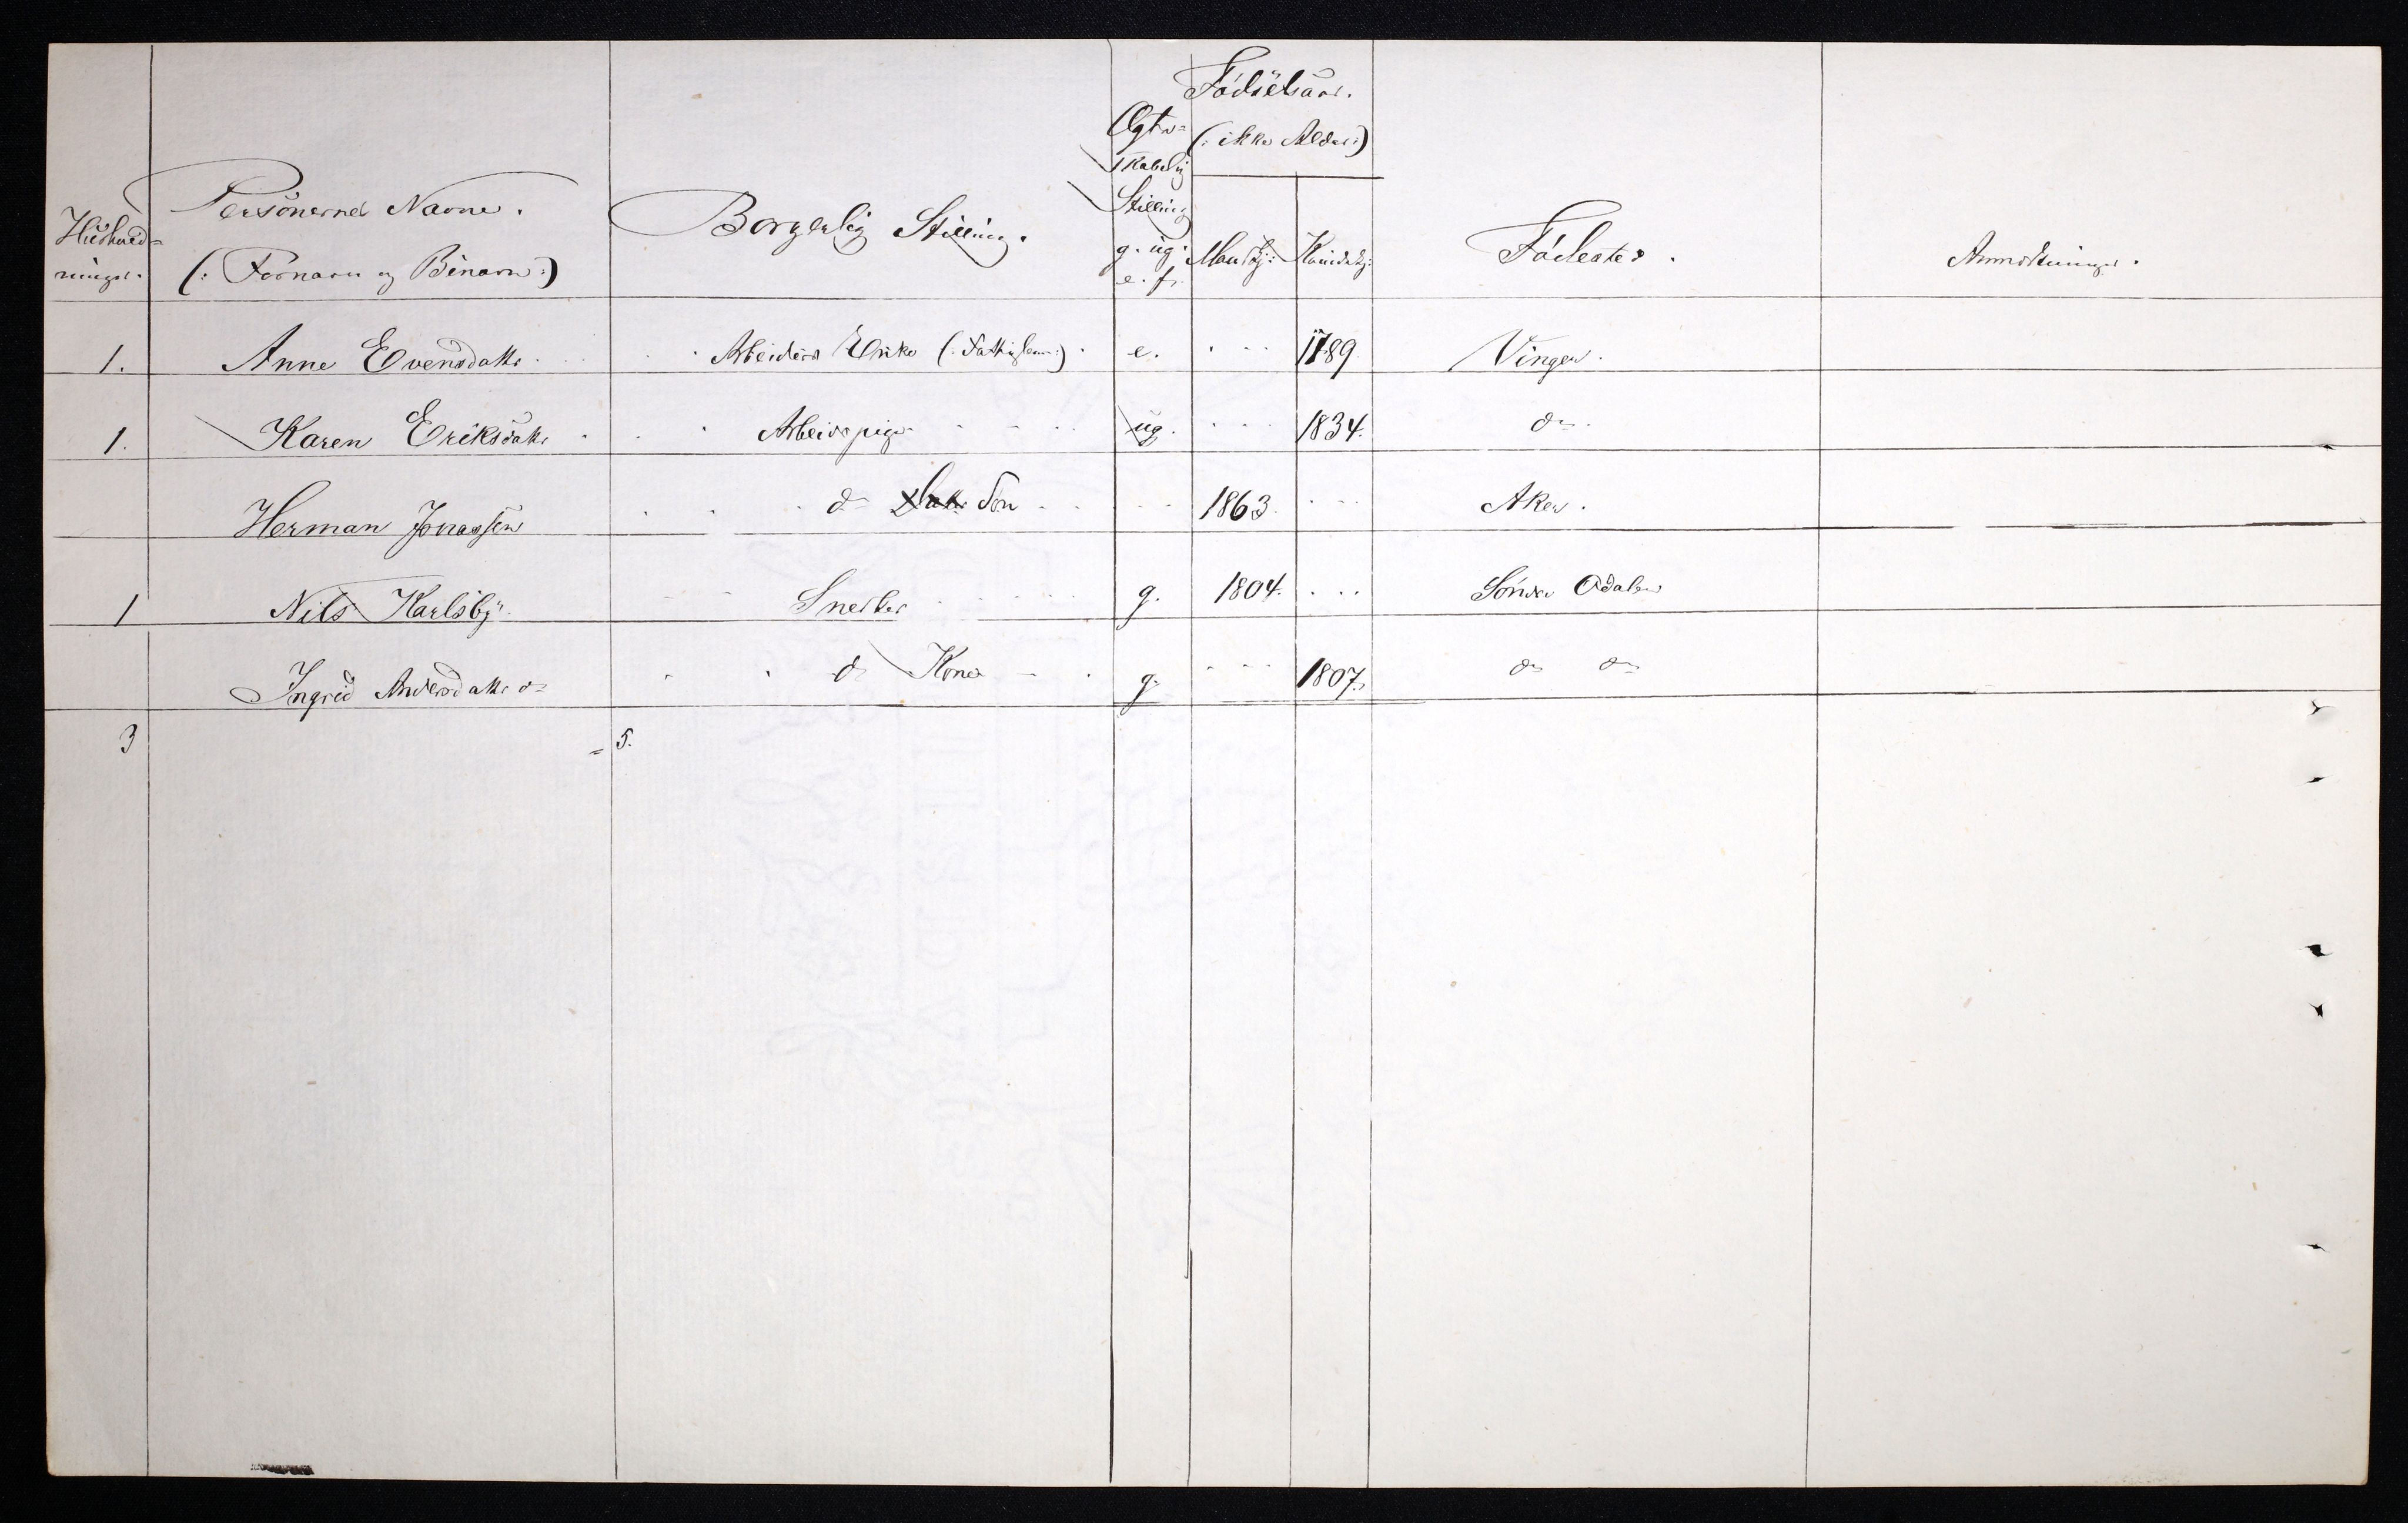 Fødselsaar.
Ægte- (: ikke Alder :)
skabelig
Personernes Navne. Borgerlig Stilling. Stilling
Hushold- g. ug. Mandkj: Kvindekj: Fødested. Anmærkninger.
ninger. (: Fornavn og Binavn :) e. f.
1. Anne Evensdatter Arbeiders Enke (: Fattiglem :) e. 1789 Vinger.
1. Karen Eriksdatter Arbeidspige ug. 1834. do
Herman Jonassen do Datter Søn 1863. Aker.
1 Nils Karlsby Snedker g. 1804. Søndre Odalen
Ingrid Andersdatter do do Kone g. 1807. do do
3 = 5.